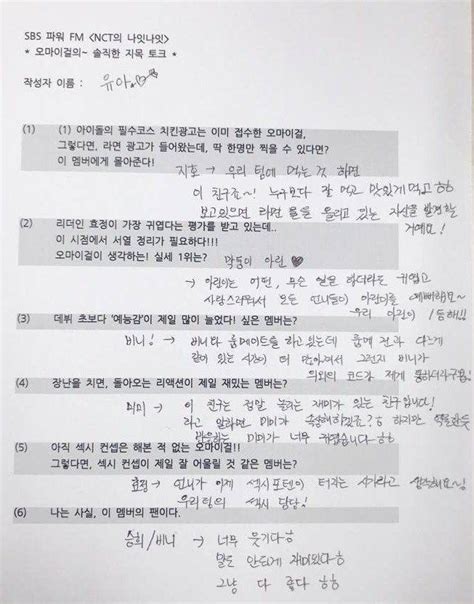 SBS 파워 FM <NCT의 나잇나잇>
* 오마이걸의~ 솔직한 지목 토크 *
작성자 이름 : 유아
(1) (1) 아이돌의 필수코스 치킨광고는 이미 접수한 오마이걸,
그렇다면, 라면 광고가 들어왔는데, 딱 한명만 찍을 수 있다면?
이 멤버에게 몰아준다!
지호 → 우리 팀에 먹는 것 하면
이 친구죠~! 누구보다 잘 먹고 맛있게 먹고 ㅎㅎ
보고있으면 라면 물을 올리고 있는 자신을 발견할
거예요!
(2) 리더인 효정이 가장 귀엽다는 평가를 받고 있는데..
이 시점에서 서열 정리가 필요하다!!!
오마이걸이 생각하는! 실세 1위는?
막둥이 아린 ♥
→ 아린이는 어떤, 무슨 일을 하더라도 귀엽고
사랑스러워서 모든 언니들이 아린이를 예뻐해요~
우리 아린이 1등해!!
(3) 데뷔 초보다 '예능감'이 제일 많이 늘었다! 싶은 멤버는?
비니! → 비니랑 룸메이트를 하고있는데 룸메 전과 다르게
같이 있는 시간이 더 많아져서 그런지 비니가
의외의 코드가 저게 통하더라구용!
(4) 장난을 치면, 돌아오는 리액션이 제일 재밌는 멤버는?
미미 → 이 친구는 정말 놀리는 재미가 있는 친구입니다!
라고 말하면 미미가 속상해하겠죠? ㅎ 하지만
반응하는 미미가 너무 귀엽습니다 ㅎㅎ
(5) 아직 섹시 컨셉은 해본 적 없는 오마이걸!!
그렇다면, 섹시 컨셉이 제일 잘 어울릴 것 같은 멤버는?
효정 → 언니가 이제 섹시포텐이 터지는 시기라고 생각해요~!
우리팀의 섹시 담당!
(6) 나는 사실, 이 멤버의 팬이다.
승희/비니 → 너무 웃기다ㅎ
말도 안되게 재미있다ㅎ
그냥 다 좋다 ㅎㅎ